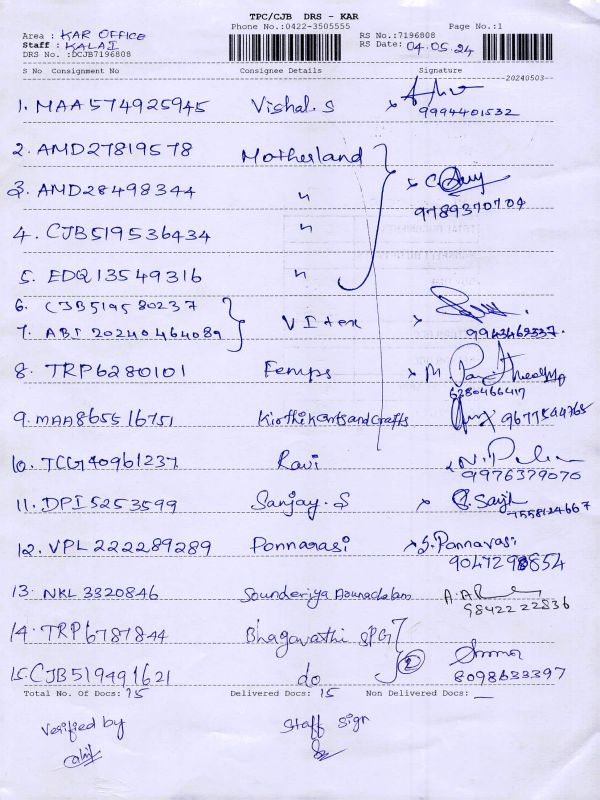 TPC/CJB DRS - KAR
Phone No.:0422-3505555 Page No.:1
Area : KAR OFFICE RS No.:7196808
Staff : KALAI RS Date: 04.05.24
DRS No. :DCJB7196808
S No Consignment No Consignee Details Signature
20240503
1. MAA574925945 Vishal. S
9994401532
2. AMD27819578 Motherland
3. AMD28498344 "
9789370704
4. CJB519536434 "
5. EDQ13549316 "
6. CJB519580237
7. ABI 20240464089 VItex 9943469337.
8. TRP6280101 Femps M
6280466417
9. MAA865516751 Kirthikartsandcrafts 9677544765
10. TCG40961237 Ravi
9976379070
11. DPI5253599 Sanjay. S
7558124667
12. VPL222289289 Ponnarasi S. Ponnarasi
13. NKL3320846 Sounderiya A.A
9842222836
14. TRP6787844 Bhagavathi SPG
2
15. CJB519491621 do 8098633397
Total No. Of Docs: 15 Delivered Docs: 15 Non Delivered Docs: —
Verified by Staff Sign